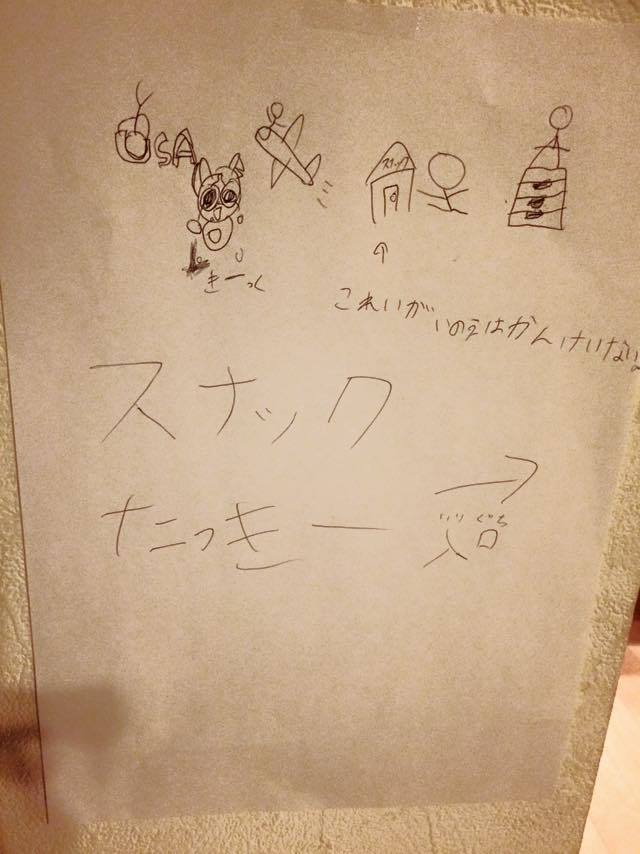 スナック
きーっく
これいがいのえはかんけいないよ
スナック
たっきー
いりぐち
入口